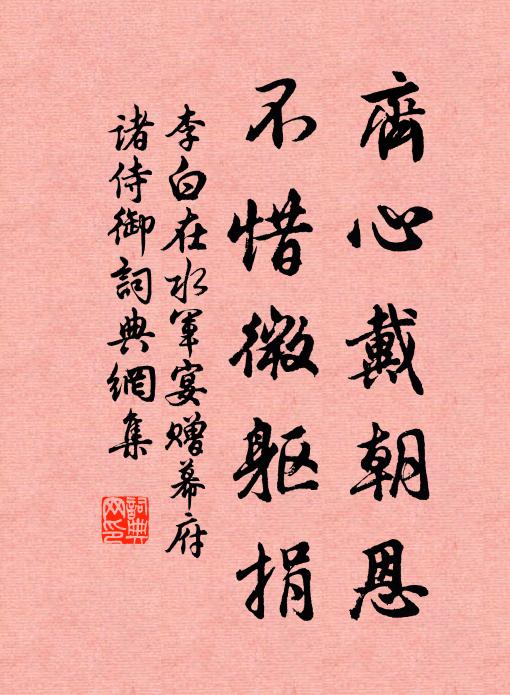 齊心戴朝恩
不惜微軀捐
李白在水軍宴赠幕府
诸侍御詞典網集
詞典
网印